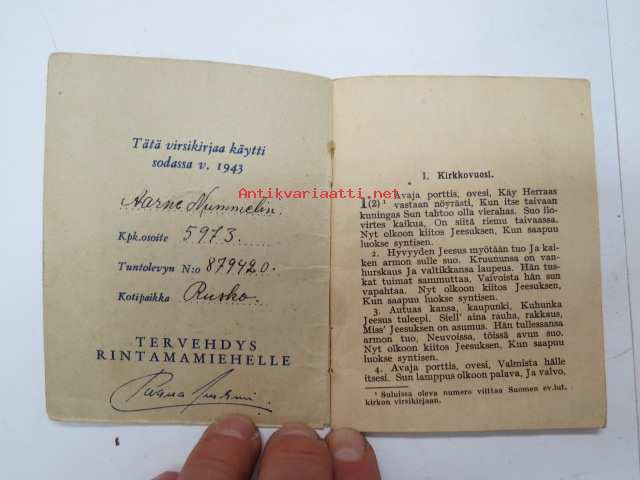 Tätä virsikirjaa käytti
sodassa v. 1943
Aarne Nummelin.
Kpk.osoite 5973.
Tuntolevyn N:o 879420.
Kotipaikka Rusko.
TERVEHDYS
RINTAMAMIEHELLE
Antikvariaatti.net
I. Kirkkovuosi.
1(2) ¹ Avaja porttis, ovesi, Käy Herraas
vastaan nöyrästi, Kun itse taivaan
kuningas Sun tahtoo olla vierahas. Suo ilo-
virtes kaikua, On siitä riemu taivaassa.
Nyt olkoon kiitos Jeesuksen, Kun saapuu
luokse syntisen.
2. Hyvyyden Jeesus myötään tuo Ja kai-
ken armon sulle suo. Kruununsa on van-
hurskaus Ja valtikkansa laupeus. Hän tus-
kat tuimat sammuttaa, Vaivoista hän sun
vapahtaa. Nyt olkoon kiitos Jeesuksen,
Kun saapuu luokse syntisen.
3. Autuas kansa, kaupunki, Kuhunka
Jeesus tuleepi. Siell' aina rauha, rakkaus,
Miss' Jeesuksen on asumus. Hän tullessansa
armon tuo, Neuvoissa, töissä avun suo.
Nyt olkoon kiitos Jeesuksen, Kun saapuu
luokse syntisen.
4. Avaja porttis, ovesi, Valmista hälle
itsesi. Sun lamppus olkoon palava, Ja valvo,
¹ Suluissa oleva numero viittaa Suomen ev.lut.
kirkon virsikirjaan.